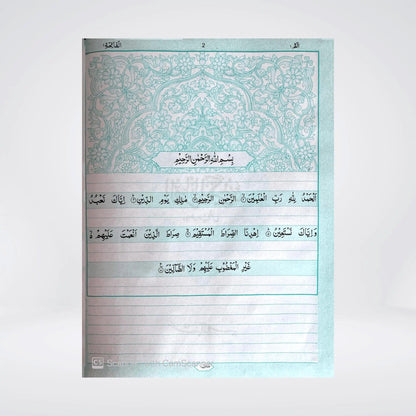 الٓمٓ 2 اَلْفَاتِحَة
بِسْمِ اللهِ الرَّحْمٰنِ الرَّحِيْمِ
اَلْحَمْدُ لِلّٰهِ رَبِّ الْعٰلَمِيْنَ ۝ الرَّحْمٰنِ الرَّحِيْمِ ۝ مٰلِكِ يَوْمِ الدِّيْنِ ۝ اِيَّاكَ نَعْبُدُ
وَاِيَّاكَ نَسْتَعِيْنُ ۝ اِهْدِنَا الصِّرَاطَ الْمُسْتَقِيْمَ ۝ صِرَاطَ الَّذِيْنَ اَنْعَمْتَ عَلَيْهِمْ
غَيْرِ الْمَغْضُوْبِ عَلَيْهِمْ وَلَا الضَّآلِّيْنَ ۝
CS Scanned with CamScanner